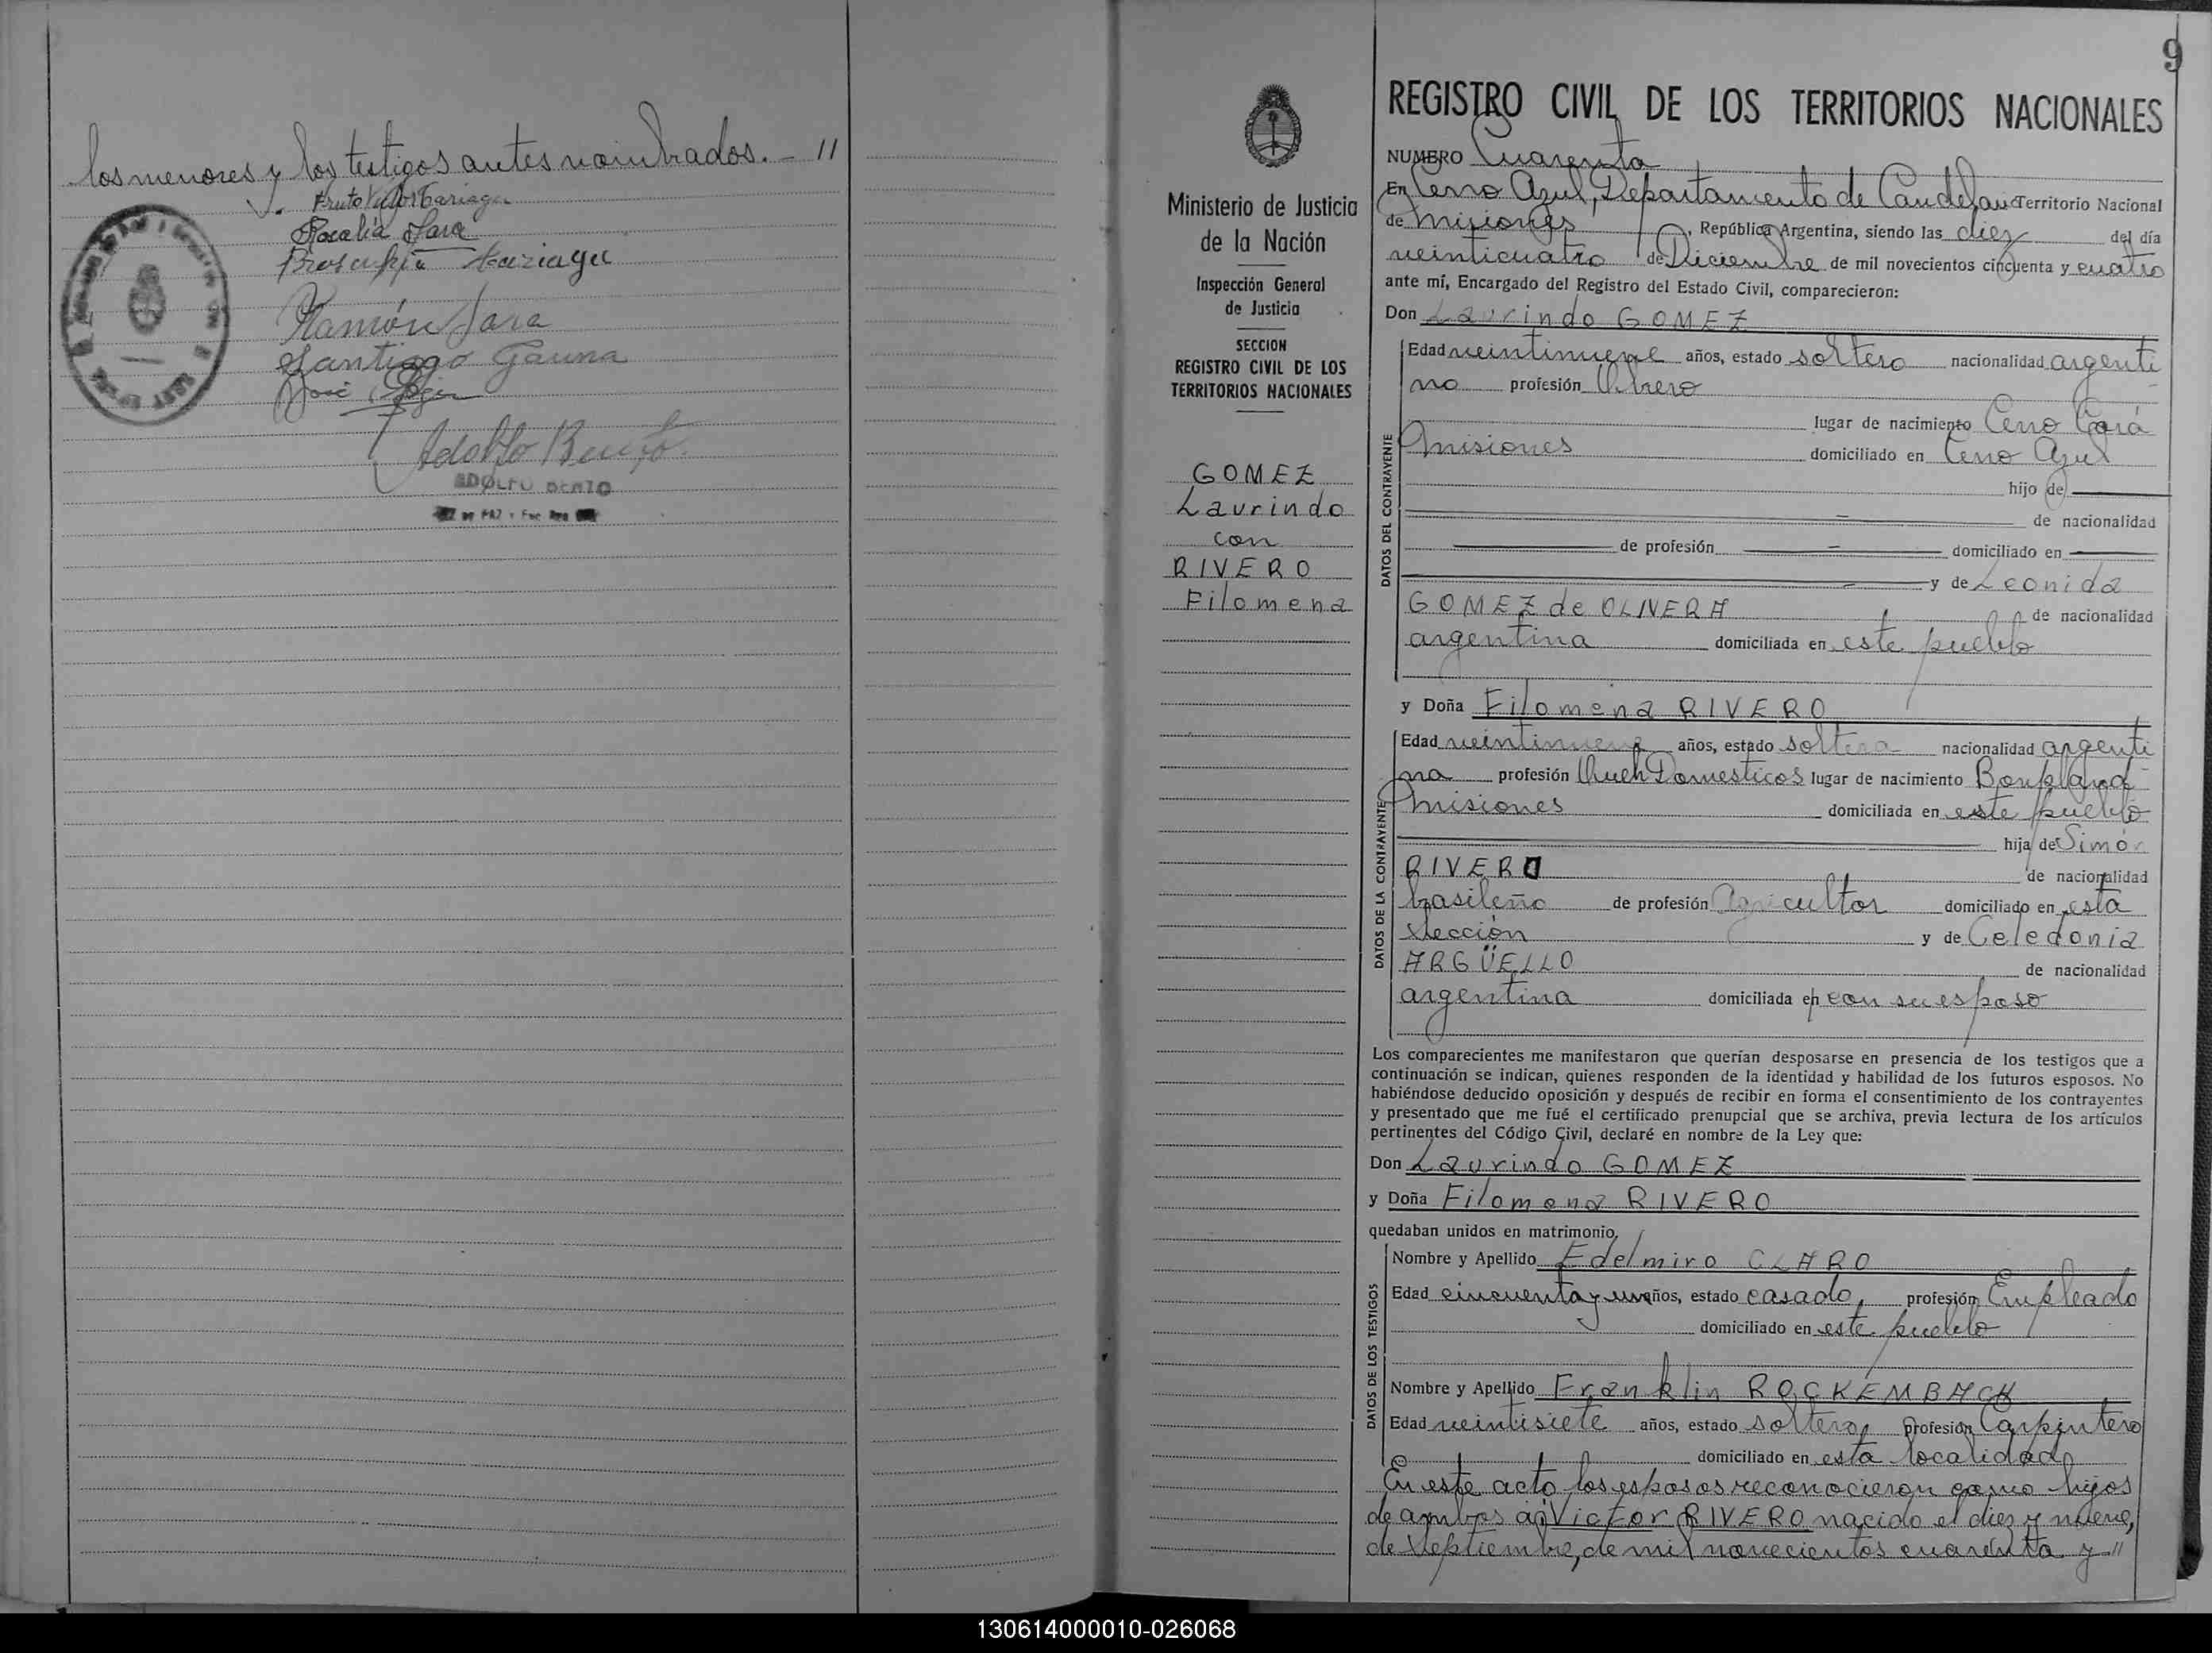 los menores y los testigos antes nombrados. - "
Rosalía Jara
Ramón Jara
Santiago Gauna
José
Adolfo
ADOLFO
9
REGISTRO CIVIL DE LOS TERRITORIOS NACIONALES
NUMERO Cuarenta
En Cerro Azul, Departamento de Candelaria Territorio Nacional
de Misiones, República Argentina, siendo las diez del día
veinticuatro de Diciembre de mil novecientos cincuenta y cuatro
ante mí, Encargado del Registro del Estado Civil, comparecieron:
Don Laurindo GOMEZ
Ministerio de Justicia
de la Nación
Inspección General
de Justicia
SECCION
REGISTRO CIVIL DE LOS
TERRITORIOS NACIONALES
GOMEZ
Laurindo
con
RIVERO
Filomena
DATOS DEL CONTRAYENTE
Edad veintinueve años, estado soltero nacionalidad argenti
no profesión Obrero
lugar de nacimiento Cerro Corá
Misiones domiciliado en Cerro Azul
hijo de
de nacionalidad
de profesión domiciliado en
y de Leonida
GOMEZ de OLIVERA de nacionalidad
argentina domiciliada en este pueblo
y Doña Filomena RIVERO
DATOS DE LA CONTRAYENTE
Edad veintinueve años, estado soltera nacionalidad argenti
na profesión Queh Domesticos lugar de nacimiento Bonpland
Misiones domiciliada en este pueblo
hija de Simón
RIVERO de nacionalidad
brasileño de profesión Agricultor domiciliado en esta
sección y de Celedonia
ARGÜELLO de nacionalidad
argentina domiciliada en con su esposo
Los comparecientes me manifestaron que querían desposarse en presencia de los testigos que a
continuación se indican, quienes responden de la identidad y habilidad de los futuros esposos. No
habiéndose deducido oposición y después de recibir en forma el consentimiento de los contrayentes
y presentado que me fué el certificado prenupcial que se archiva, previa lectura de los artículos
pertinentes del Código Civil, declaré en nombre de la Ley que:
Don Laurindo GOMEZ
y Doña Filomena RIVERO
quedaban unidos en matrimonio,
DATOS DE LOS TESTIGOS
Nombre y Apellido Edelmiro CLARO
Edad cincuenta y un años, estado casado, profesión Empleado
domiciliado en este pueblo
Nombre y Apellido Franklin ROCKEMBACH
Edad veintisiete años, estado soltero, profesión Carpintero
domiciliado en esta localidad
En este acto los esposos reconocieron como hijos
de ambos a: Victor RIVERO nacido el diez y nueve,
de Septiembre, de mil novecientos cuarenta y "
130614000010-026068